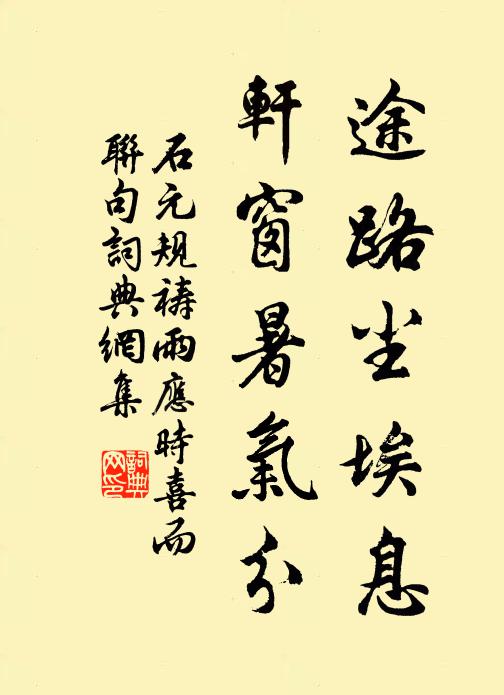 途路尘埃息
軒窗暑氣分
石元規禱雨應時喜而
聯句詞典網集
詞典
网印